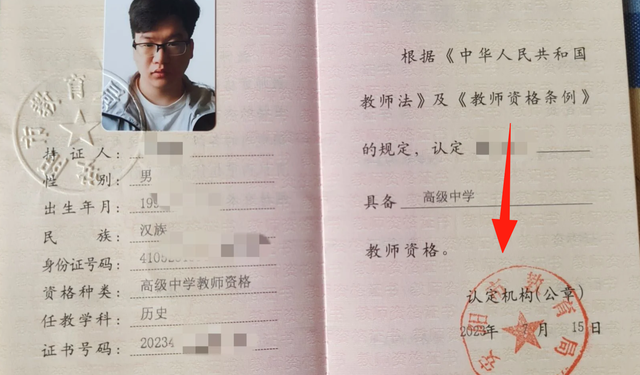 持证人：
性别：男
出生年月：19
民族：汉族
身份证号码：41052
资格种类：高级中学教师资格
任教学科：历史
证书号码：20234
根据《中华人民共和国
教师法》及《教师资格条例》
的规定，认定
具备 高级中学
教师资格。
认定机构(公章)
2023年7月15日
安阳市教育局
市教育局